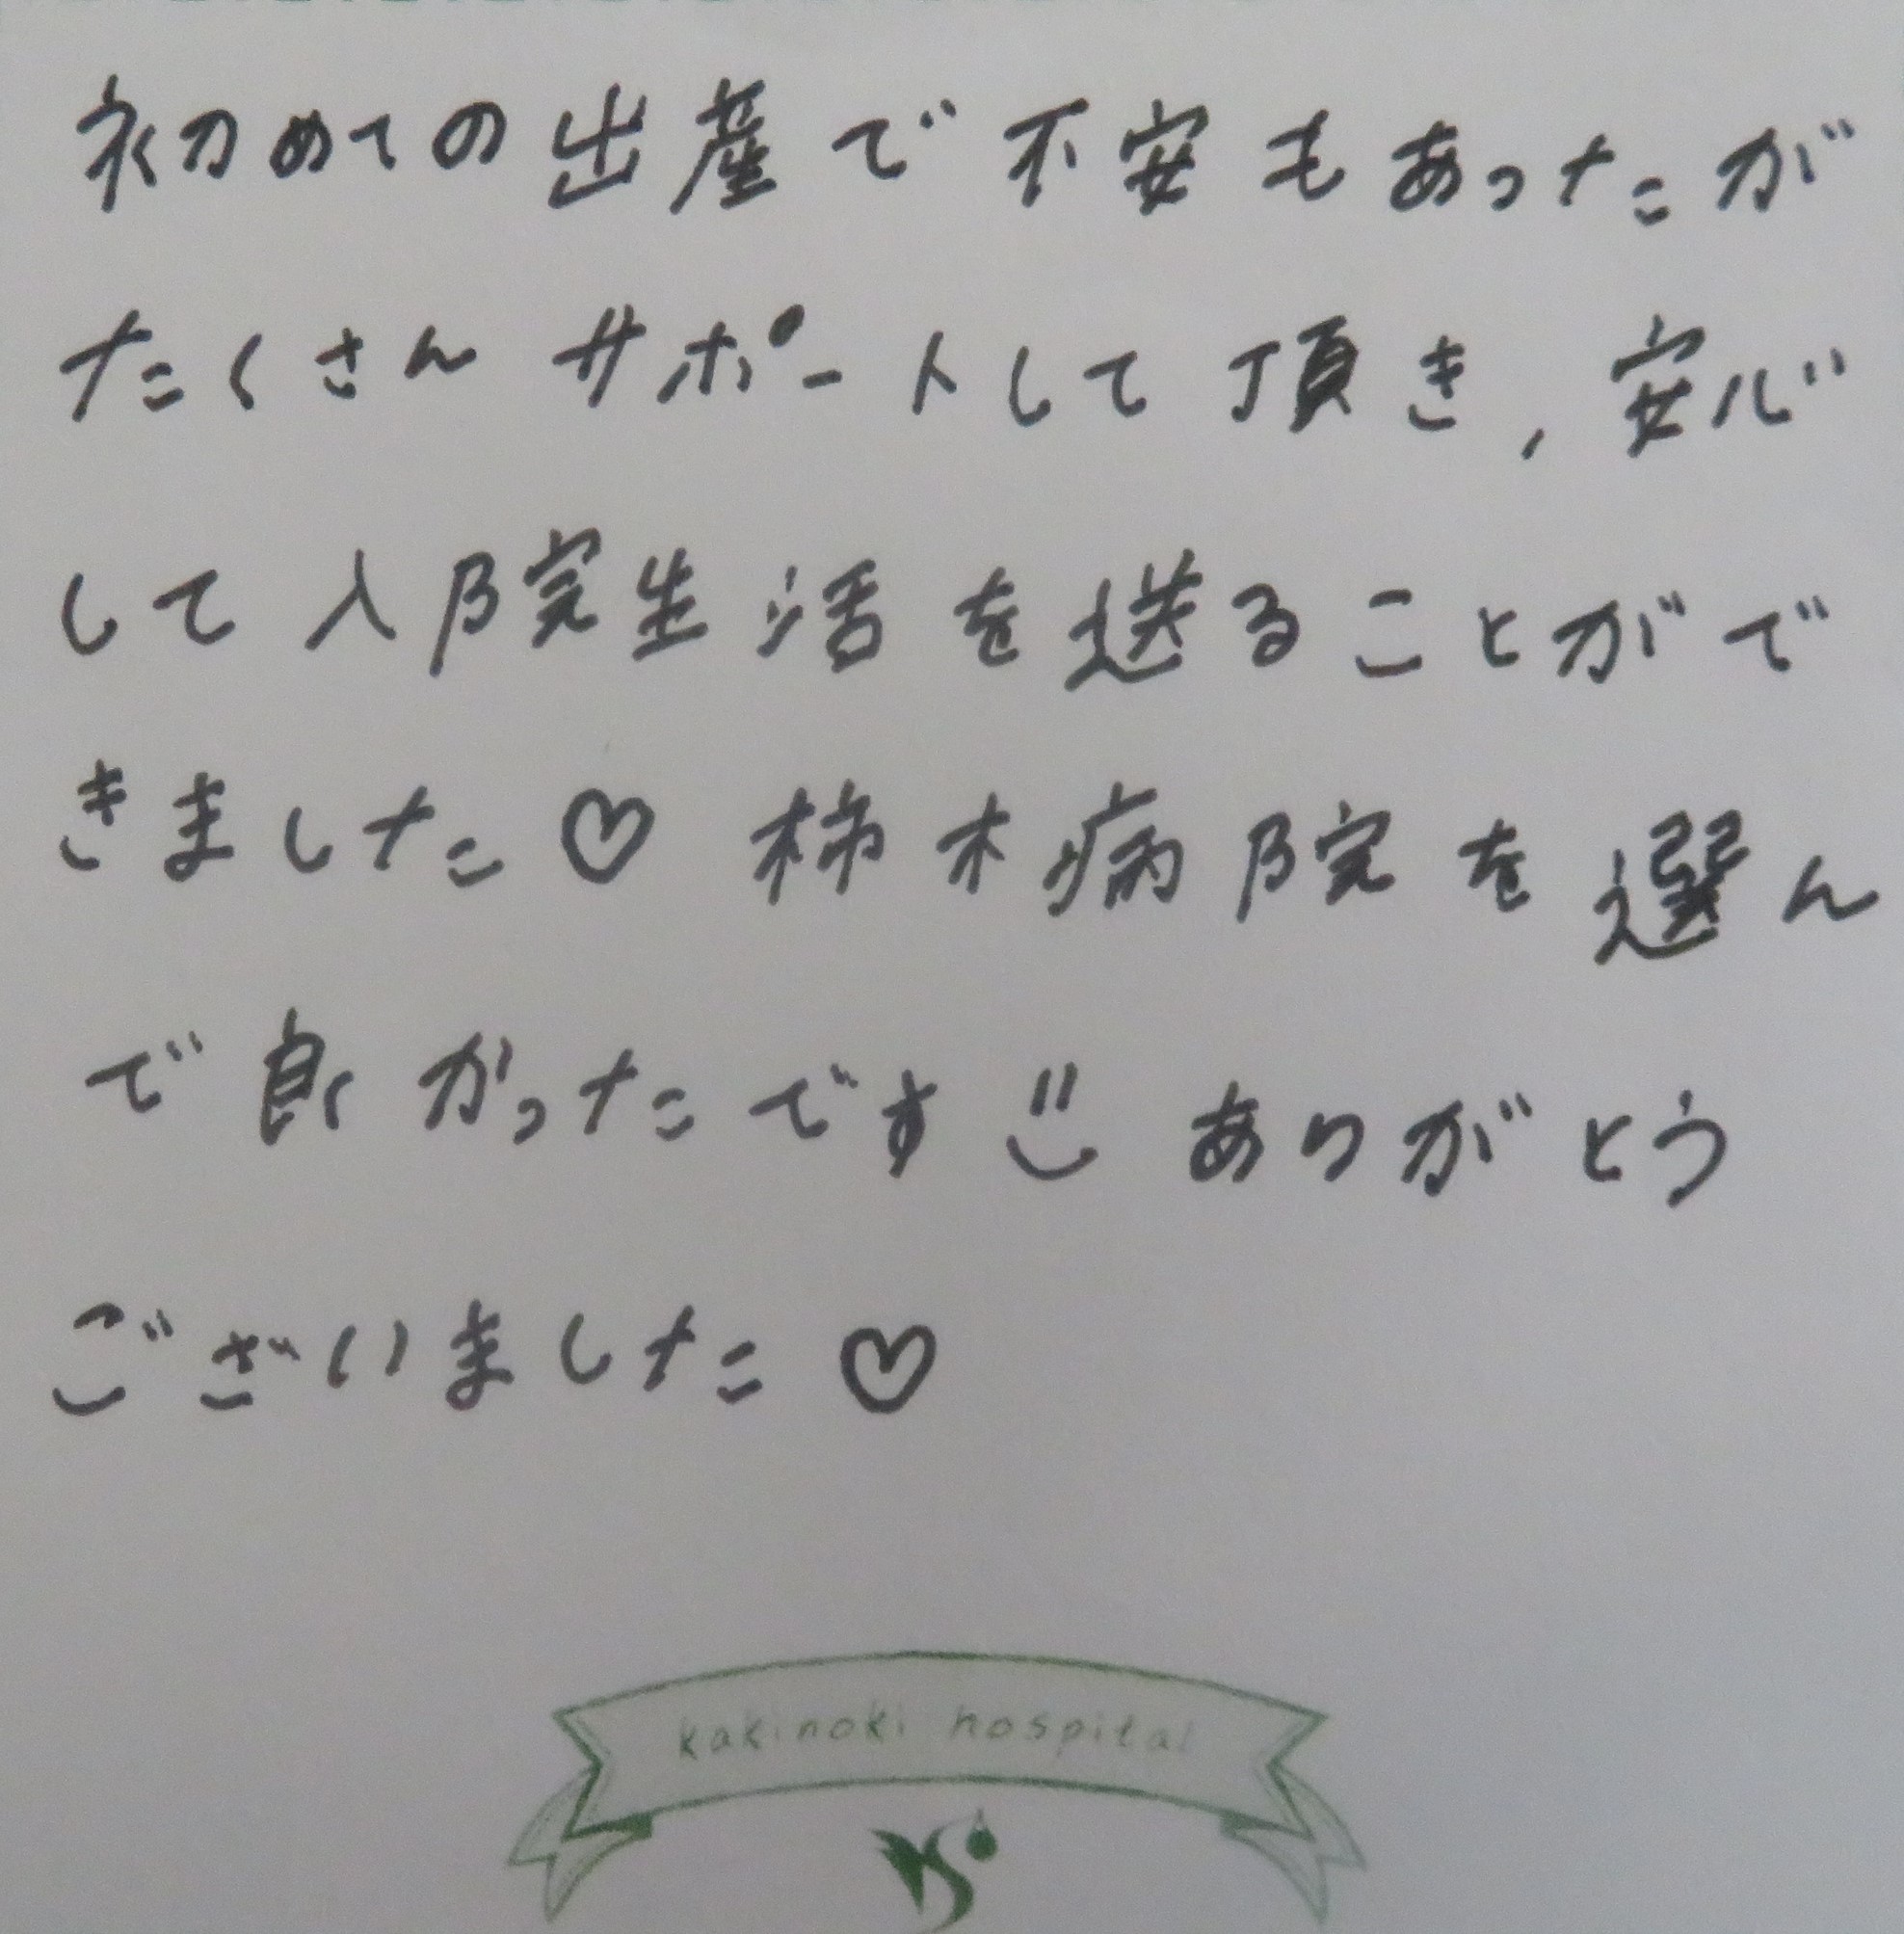 初めての出産で不安もあったが
たくさんサポートして頂き、安心
して入院生活を送ることがで
きました♡ 柿木病院を選ん
で良かったです ありがとう
ございました♡
kakinoki hospital